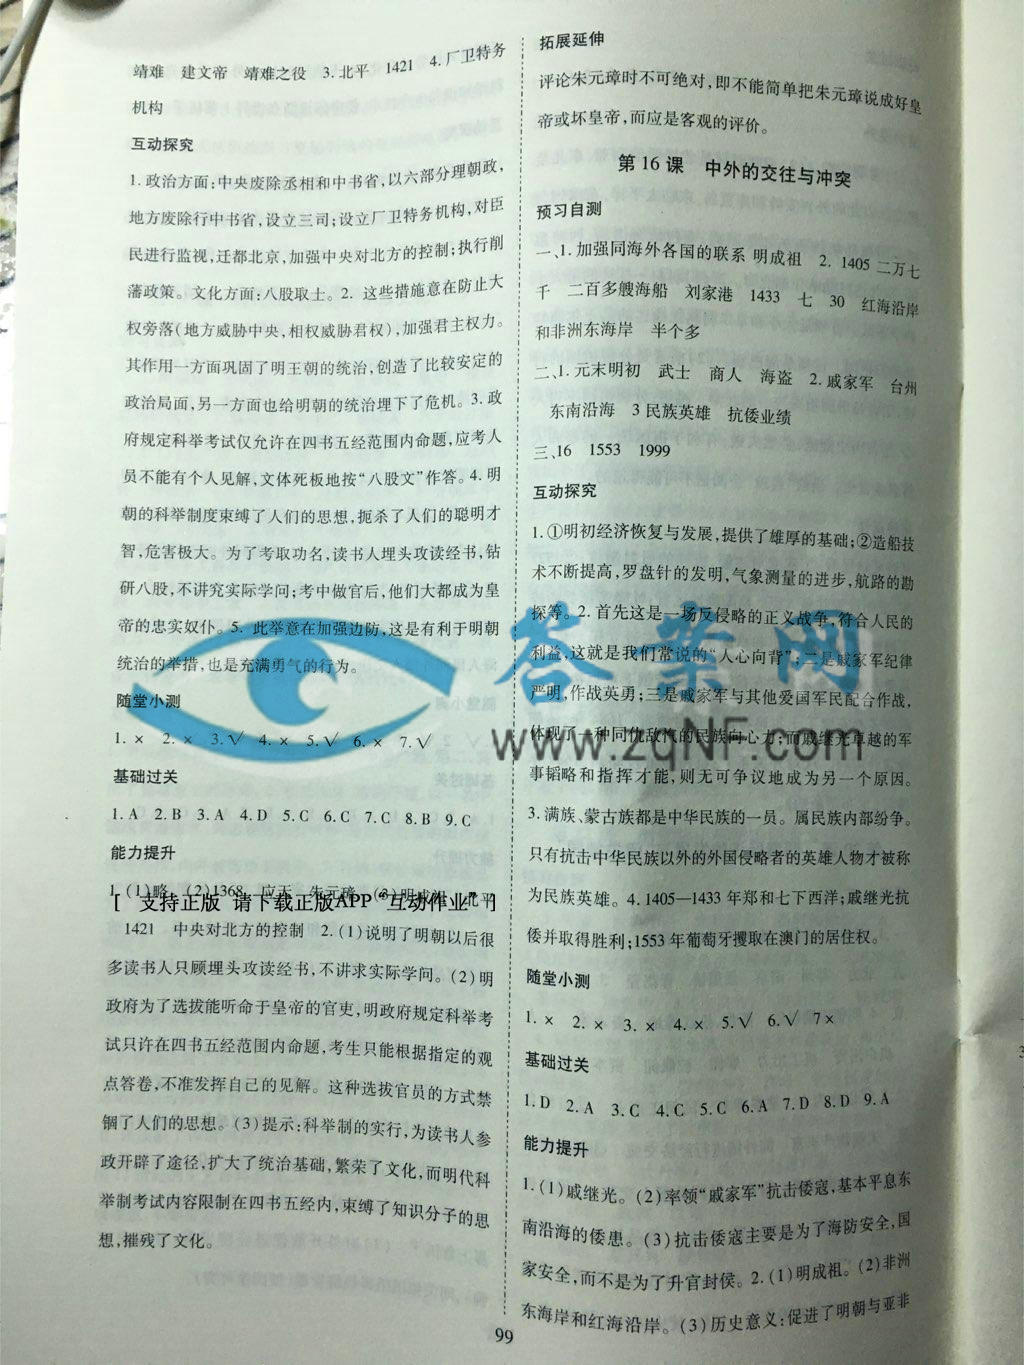 靖难　建文帝　靖难之役　3.北平　1421　4.厂卫特务
机构
互动探究
1.政治方面:中央废除丞相和中书省,以六部分理朝政,
地方废除行中书省,设立三司;设立厂卫特务机构,对臣
民进行监视,迁都北京,加强中央对北方的控制;执行削
藩政策。文化方面:八股取士。2. 这些措施意在防止大
权旁落(地方威胁中央,相权威胁君权),加强君主权力。
其作用一方面巩固了明王朝的统治,创造了比较安定的
政治局面,另一方面也给明朝的统治埋下了危机。3.政
府规定科举考试仅允许在四书五经范围内命题,应考人
员不能有个人见解,文体死板地按“八股文”作答。4.明
朝的科举制度束缚了人们的思想,扼杀了人们的聪明才
智,危害极大。为了考取功名,读书人埋头攻读经书,钻
研八股,不讲究实际学问;考中做官后,他们大都成为皇
帝的忠实奴仆。5. 此举意在加强边防,这是有利于明朝
统治的举措,也是充满勇气的行为。
随堂小测
1. ×　2. ×　3.√　4. ×　5.√　6. ×　7.√
基础过关
1.A　2.B　3.A　4.D　5.C　6.C　7.C　8.B　9.C
能力提升
1.(1)略　(2)1368　应天　朱元璋　(3)明成祖　北平
[　支持正版　请下载正版APP“互动作业”　]
1421　中央对北方的控制　2.(1)说明了明朝以后很
多读书人只顾埋头攻读经书,不讲求实际学问。(2)明
政府为了选拔能听命于皇帝的官吏,明政府规定科举考
试只许在四书五经范围内命题,考生只能根据指定的观
点答卷,不准发挥自己的见解。这种选拔官员的方式禁
锢了人们的思想。(3)提示:科举制的实行,为读书人参
政开辟了途径,扩大了统治基础,繁荣了文化,而明代科
举制考试内容限制在四书五经内,束缚了知识分子的思
想,摧残了文化。
拓展延伸
评论朱元璋时不可绝对,即不能简单把朱元璋说成好皇
帝或坏皇帝,而应是客观的评价。
第 16 课　中外的交往与冲突
预习自测
一、1.加强同海外各国的联系 明成祖　2. 1405 二万七
千　二百多艘海船　刘家港　1433　七　30　红海沿岸
和非洲东海岸　半个多
二、1.元末明初　武士　商人　海盗　2.戚家军　台州
东南沿海　3 民族英雄　抗倭业绩
三、16　1553　1999
互动探究
1.①明初经济恢复与发展,提供了雄厚的基础;②造船技
术不断提高,罗盘针的发明,气象测量的进步,航路的勘
探等。2. 首先这是一场反侵略的正义战争,符合人民的
利益,这就是我们常说的“人心向背”;二是戚家军纪律
严明,作战英勇;三是戚家军与其他爱国军民配合作战,
体现了一种同仇敌忾的民族向心力;而戚继光卓越的军
事韬略和指挥才能,则无可争议地成为另一个原因。
3.满族、蒙古族都是中华民族的一员。属民族内部纷争。
只有抗击中华民族以外的外国侵略者的英雄人物才被称
为民族英雄。4.1405—1433 年郑和七下西洋;戚继光抗
倭并取得胜利;1553 年葡萄牙攫取在澳门的居住权。
随堂小测
1. ×　2. ×　3. ×　4. ×　5.√　6.√　7 ×
基础过关
1.D　2.A　3.C　4.C　5.C　6.A　7.D　8.D　9.A
能力提升
1.(1)戚继光。(2)率领“戚家军”抗击倭寇,基本平息东
南沿海的倭患。(3)抗击倭寇主要是为了海防安全,国
家安全,而不是为了升官封侯。2.(1)明成祖。(2)非洲
东海岸和红海沿岸。(3)历史意义:促进了明朝与亚非
99
答案网
www.zqNF.com